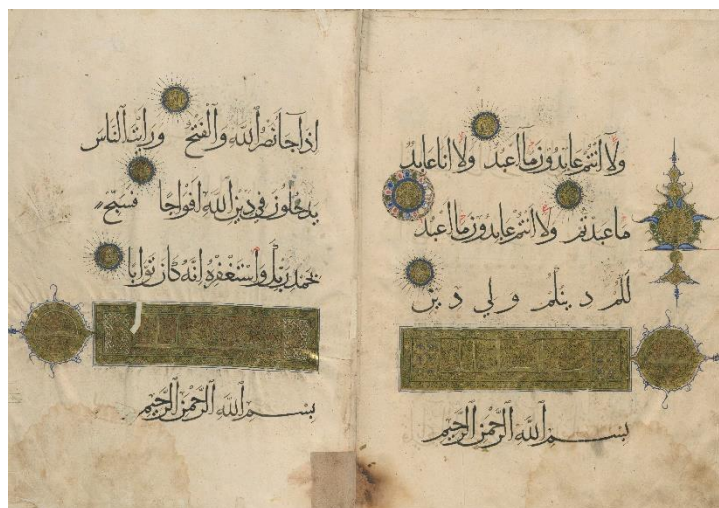 ولا أنتم عابدون ما أعبد ولا أنا عابد
ما عبدتم ولا أنتم عابدون ما أعبد
لكم دينكم ولي دين
بسم الله الرحمن الرحيم
إذا جا نصر الله والفتح ورأيت الناس
يدخلون في دين الله أفواجا فسبح
بحمد ربك واستغفره إنه كان توابا
بسم الله الرحمن الرحيم